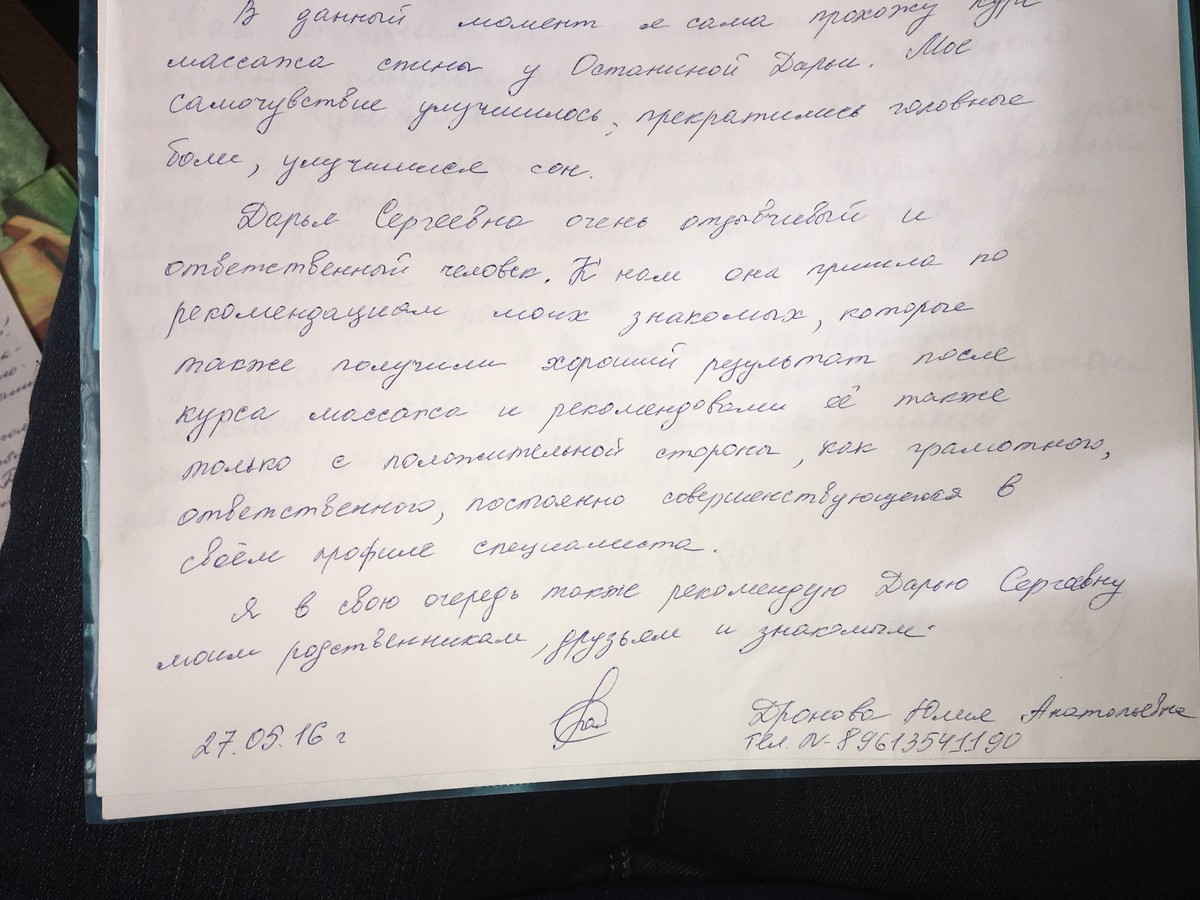 В данный момент я сама прохожу курс
массажа спины у Останиной Дарьи. Мое
самочувствие улучшилось, прекратились головные
боли, улучшился сон.
Дарья Сергеевна очень отзывчивый и
ответственный человек. К нам она пришла по
рекомендациям моих знакомых, которые
также получили хороший результат после
курса массажа и рекомендовали её также
только с положительной стороны, как грамотного,
ответственного, постоянно совершенствующегося в
своём профиле специалиста.
Я в свою очередь также рекомендую Дарью Сергевну
моим родственникам, друзьям и знакомым.
27.05.16 г
Дронова Юлия Анатольевна
тел. N- 89613541190